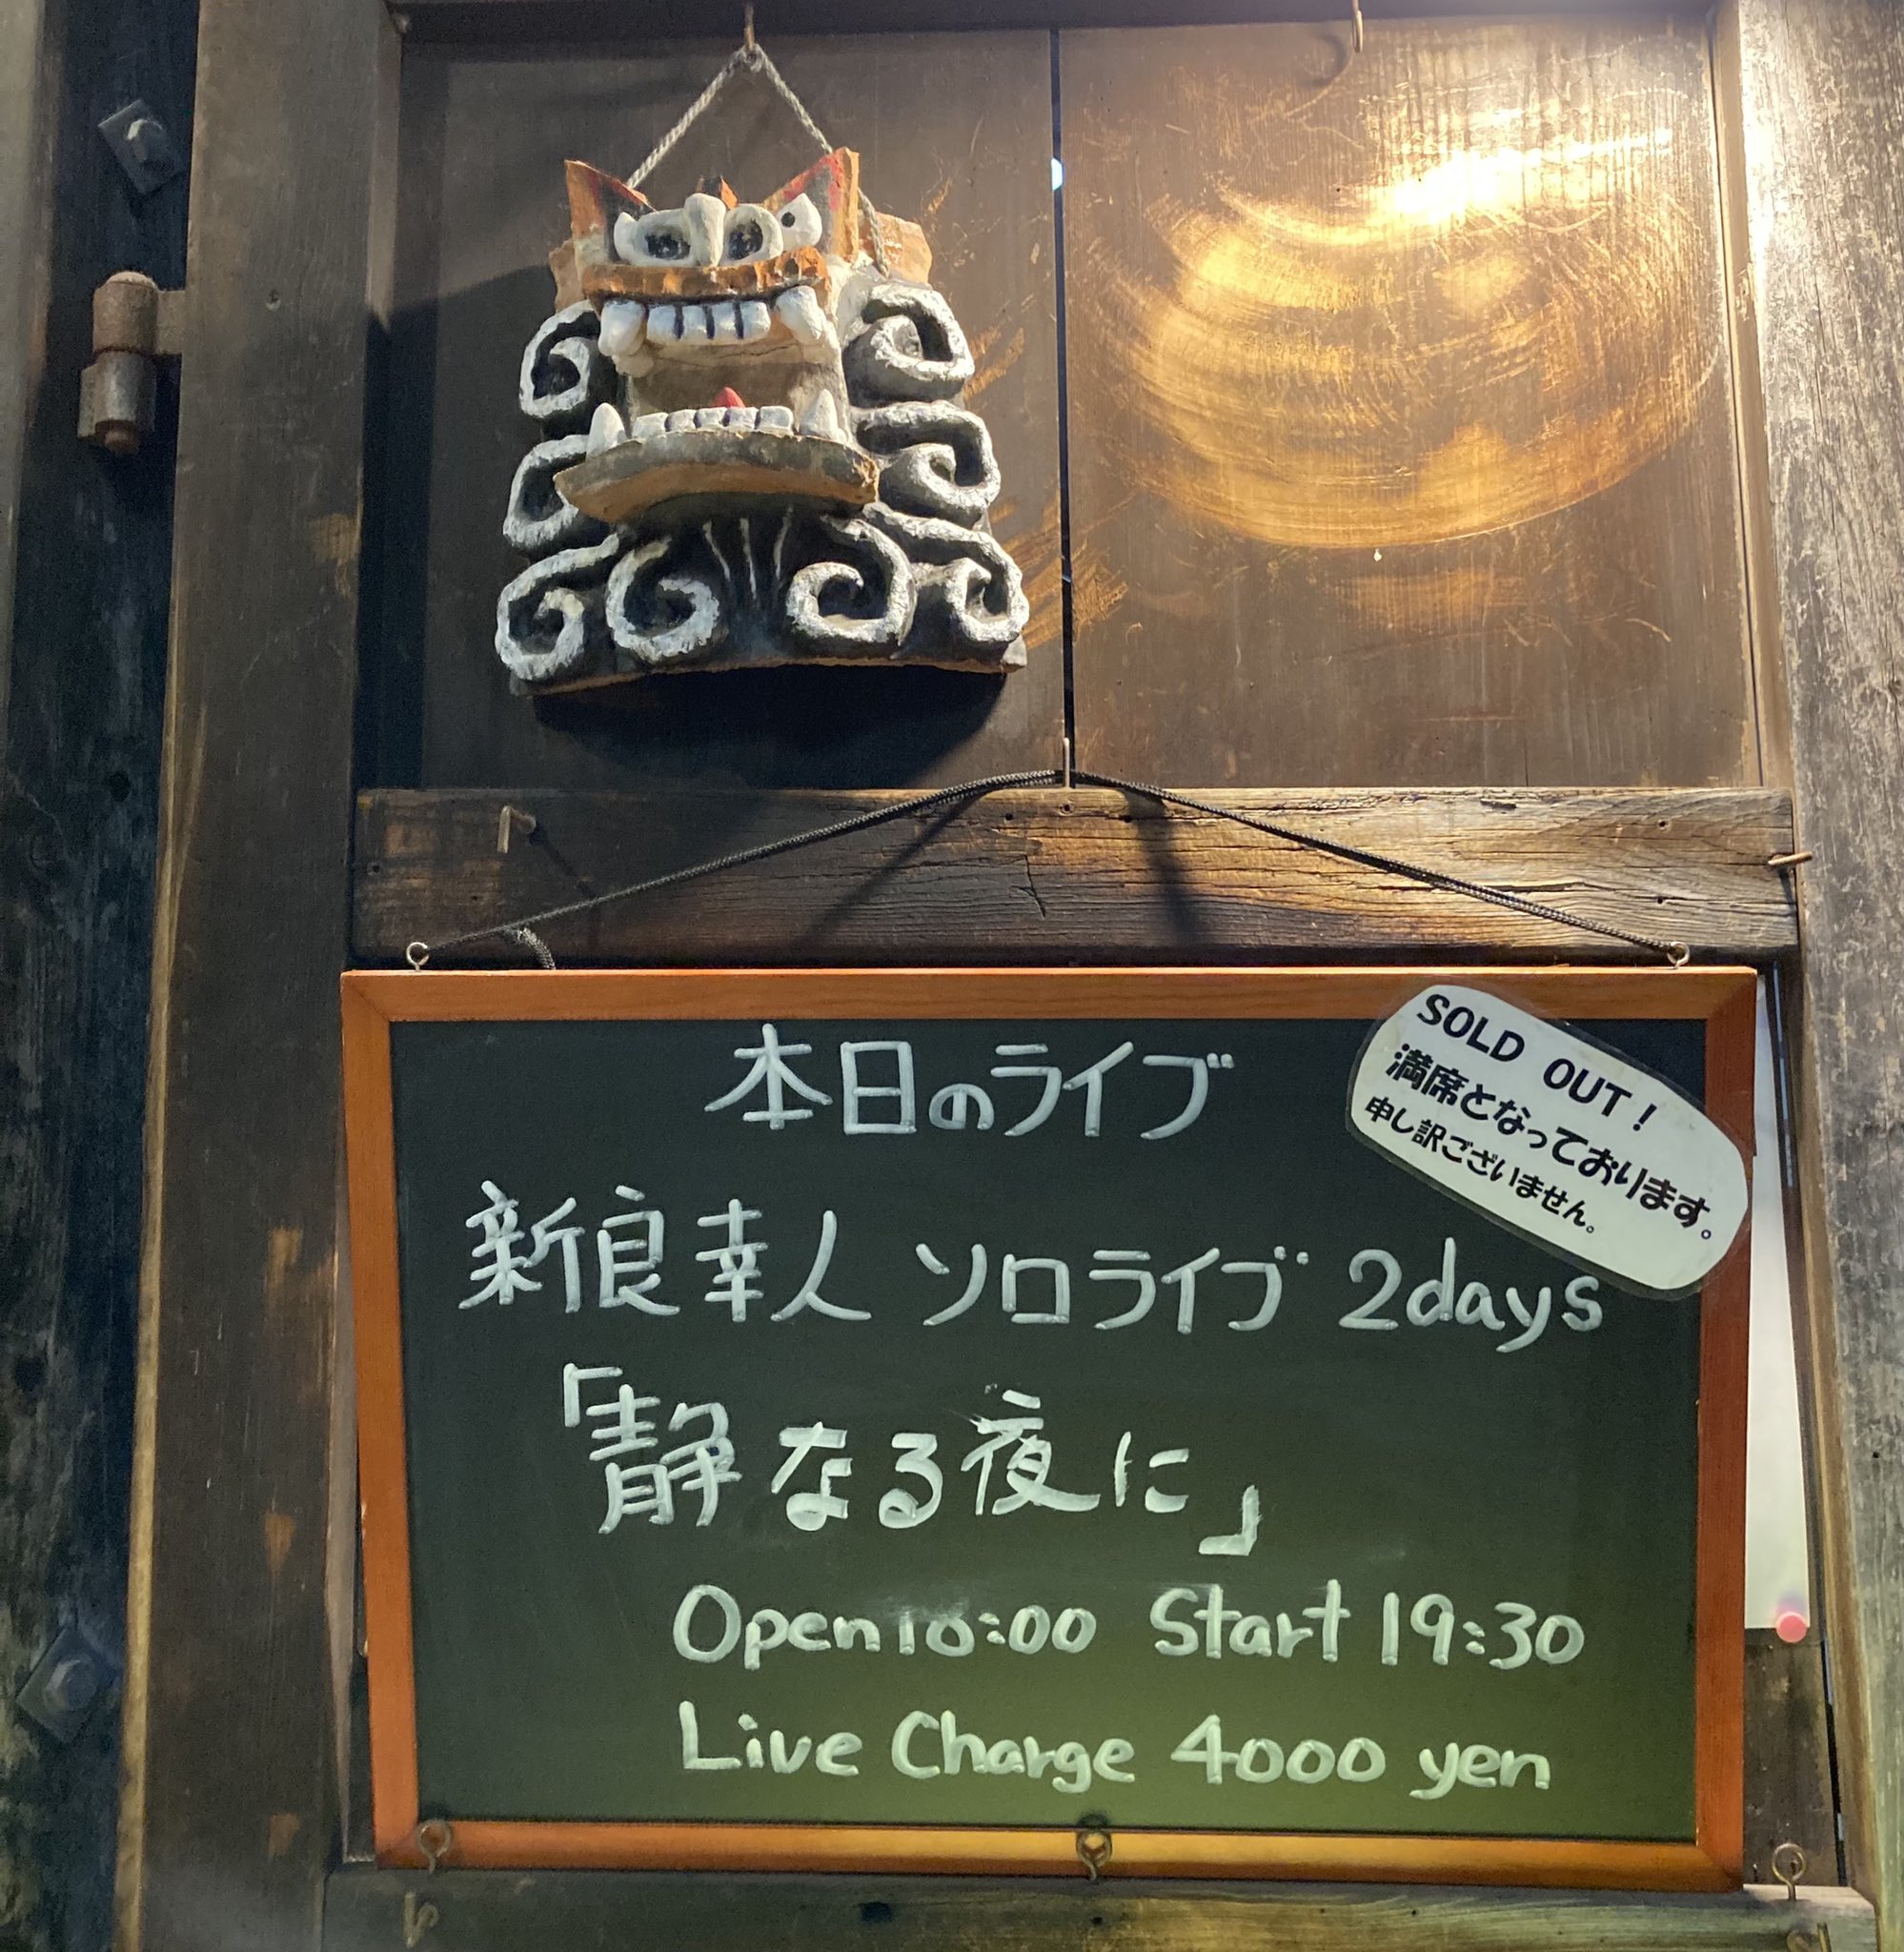 本日のライブ
SOLD OUT!
満席となっております。
申し訳ございません。
新良幸人 ソロライブ 2days
「静なる夜に」
Open 18:00 Start 19:30
Live Charge 4000 yen